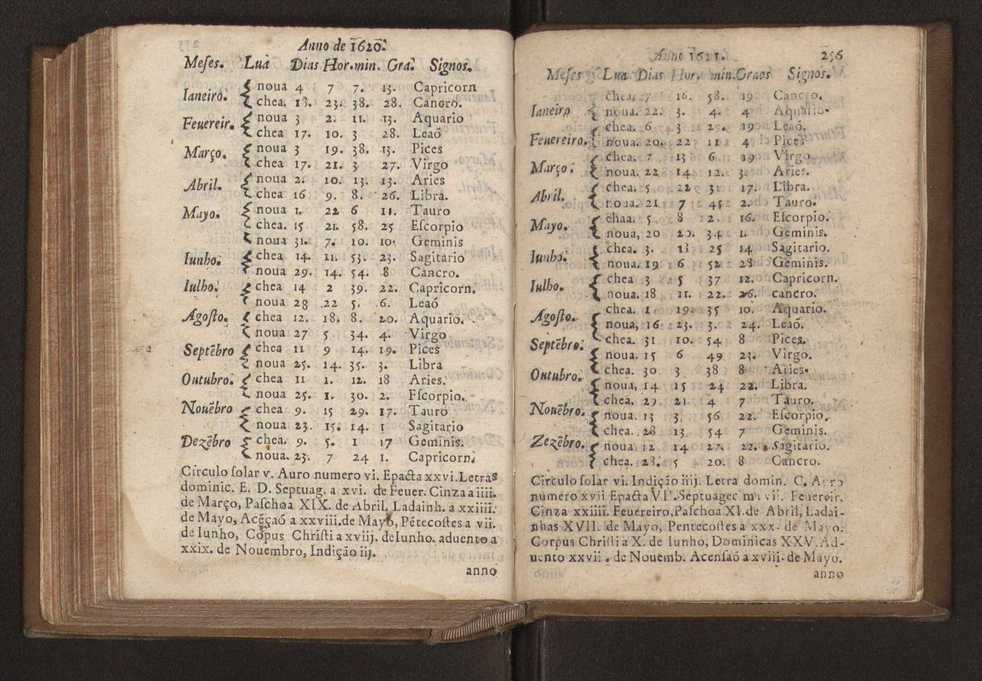 Anno de 1620.
Meses. Lua Dias Hor. min. Gra. Signos.
Ianeiro. noua 4 7 7. 13. Capricorn
chea. 18. 23. 38. 28. Cancro.
Feuereir. noua 3 2. 11. 13. Aquario
chea 17. 10. 3 28. Leaõ
Março. noua 3 19. 38. 13. Pices
chea 17. 21. 3 27. Virgo
Abril. noua 2. 10. 13. 13. Aries
chea 16 9. 8. 26. Libra.
Mayo. noua 1. 22 6 11. Tauro
chea. 15 21. 58. 25 Escorpio
noua 31. 7. 10. 10. Geminis
Iunho. chea 14. 11. 53. 23. Sagitario
noua 29. 14. 54. 8 Cancro.
Iulho. chea 14 2 39. 22. Capricorn.
noua 28 22 5. 6. Leaõ
Agosto. chea 12. 18. 8. 20. Aquario.
noua 27 5 34. 4. Virgo
Septẽbro chea 11 9 14. 19. Pices
noua 25. 14. 35. 3. Libra
Outubro. chea 11 1. 12. 18 Aries.
noua 25. 1. 30. 2. Escorpio.
Nouẽbro chea 9. 15 29. 17. Tauro
noua 23. 15. 14. 1 Sagitario
Dezẽbro chea. 9. 5. 1 17 Geminis.
noua. 23. 7 24 1. Capricorn.
Circulo solar v. Auro numero vi. Epacta xxvi. Letras
dominic. E. D. Septuag. a xvi. de Feuer. Cinza a iiii.
de Março, Paschoa XIX. de Abril, Ladainh. a xxiiii.
de Mayo, Acẽçaõ a xxviii. de Mayo, Pẽtecostes a vii.
de Iunho, Copus Christi a xviij. de Iunho. aduento a
xxix. de Nouembro, Indição iij.
anno
Anno 1621. 256
Meses Lua Dias Hor. min. Graos Signos.
Ianeiro chea, 7 16. 58. 19 Cancro.
noua. 22. 3. 4. 4 Aquario.
Feuereiro. chea. 6 3 29. 19 Leaõ.
noua. 20. 22 11 4 Pices
Março. chea. 7 13 6 19 Virgo.
noua. 22 14 12. 3. Aries.
Abril. chea. 5 22 3 17. Libra.
noua. 21 7 45 2. Tauro.
Mayo. chaa. 5 8 12. 16. Escorpio.
noua, 20 20 34 1. Geminis.
Iunho. chea. 3. 13 25 14 Sagitario.
noua. 19 6 52 28 Geminis.
Iulho. chea 3 5 37 12. Capricorn.
noua. 18 11. 22. 26. cancro.
Agosto. chea. 1 19. 35 10. Aquario.
noua, 16 23. 3. 24. Leaõ.
Septẽbro. chea. 31 10. 54 8 Pices.
noua. 15 6 49 23. Virgo.
Outubro. chea. 30 3 38 8 Aries.
noua, 14 15 24 22. Libra.
Nouẽbro. chea. 29 21. 4 7 Tauro.
noua. 13 3. 56 22. Escorpio.
Zezẽbro. chea. 28 13. 54 7 Geminis.
noua 12 14 27. 22. Sagitario.
chea. 28. 5 20. 8 Cancro.
Circulo solar vi. Indição iiij. Letra domin. C. Auro
numero xvii Epacta VII. Feuereir.
Cinza xxiiii. Feuereiro, Paschoa XI. de Abril, Ladai-
nhas XVII. de Mayo, Pentecostes a xxx. de Mayo.
Corpus Christi a X. de Iunho, Dominicas XXV. Ad-
uento xxvii. de Nouemb. Acensaõ a xviii. de Mayo.
anno